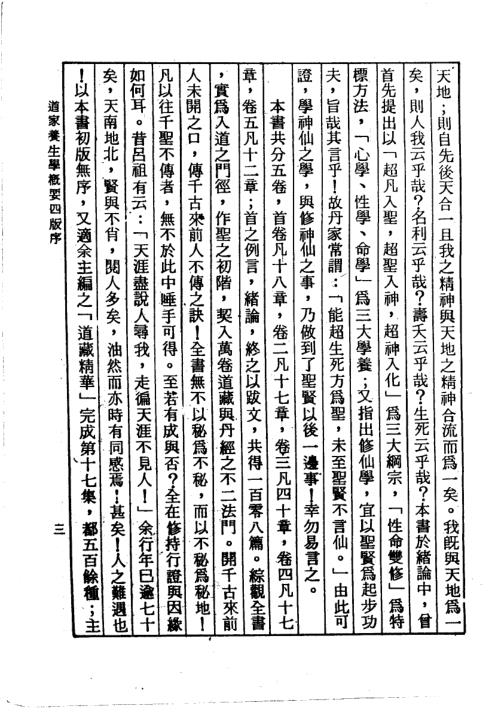 天地；則自先後天合一且我之精神與天地之精神合流而爲一矣。我既與天地爲一
矣，則人我云乎哉？名利云乎哉？壽夭云乎哉？生死云乎哉？本書於緒論中，曾
首先提出以「超凡入聖，超聖入神，超神入化」爲三大綱宗，「性命雙修」爲特
標方法，「心學、性學、命學」爲三大學養；又指出修仙學，宜以聖賢爲起步功
夫，旨哉其言乎！故丹家常謂：「能超生死方爲聖，未至聖賢不言仙。」由此可
證，學神仙之學，與修神仙之事，乃做到了聖賢以後一邊事！幸勿易言之。
本書共分五卷，首卷凡十八章，卷二凡十七章，卷三凡四十章，卷四凡十七
章，卷五凡十二章；首之例言，緒論，終之以跋文，共得一百零八篇。綜觀全書
，實爲入道之門徑，作聖之初階，契入萬卷道藏與丹經之不二法門。開千古來前
人未開之口，傳千古來前人不傳之訣！全書無不以秘爲不秘，而以不秘爲秘地！
凡以往千聖不傳者，無不於此中唾手可得。至若有成與否？全在修持行證與因緣
如何耳。昔呂祖有云：「天涯盡說人尋我，走徧天涯不見人！」余行年已逾七十
矣，天南地北，賢與不肖，閱人多矣，油然而亦時有同感焉！甚矣！人之難遇也
！以本書初版無序，又適余主編之「道藏精華」完成第十七集，都五百餘種；主
道家養生學概要四版序
三